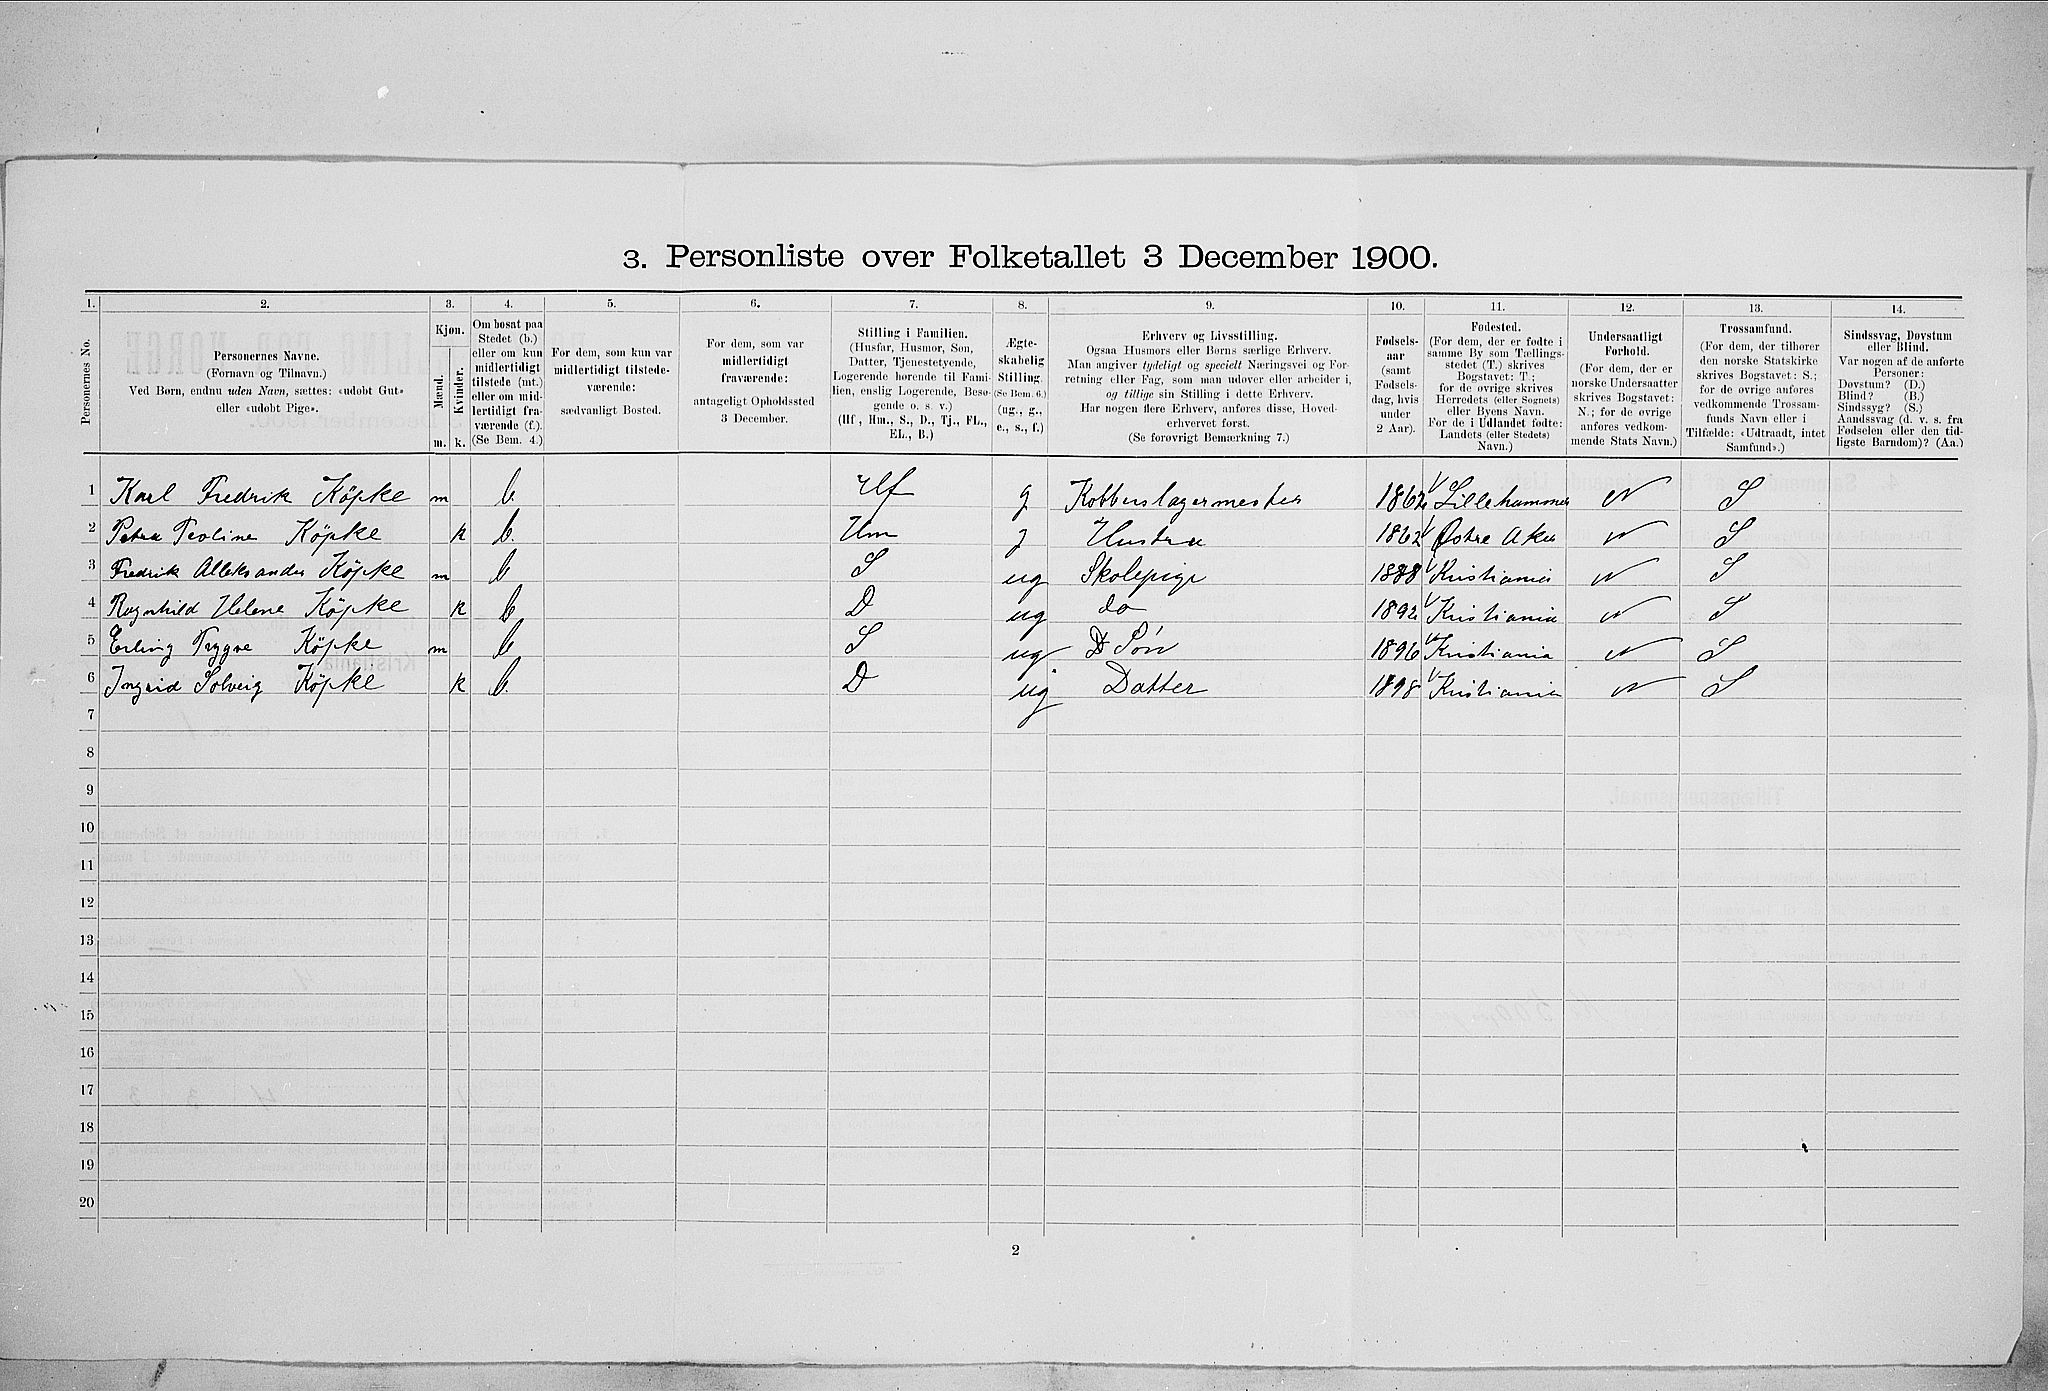 3. Personliste over Folketallet 3 December 1900.
1. 2. 3. 4. 5. 6. 7. 8. 9. 10. 11. 12. 13. 14.
Personernes No.
Personernes Navne.
(Fornavn og Tilnavn.)
Ved Børn, endnu uden Navn, sættes: «udobt Gut»
eller «udobt Pige».
Kjøn.
Mænd.
Kvinder.
m. k.
Om bosat paa
Stedet (b.)
eller om kun
midlertidigt
tilstede (mt.)
eller om mid-
lertidigt fra-
værende (f.).
(Se Bem. 4.)
For dem, som kun var
midlertidigt tilstede-
værende:
sædvanligt Bosted.
For dem, som var
midlertidigt
fraværende:
antageligt Opholdssted
3 December.
Stilling i Familien.
(Husfar, Husmor, Søn,
Datter, Tjenestetyende,
Logerende hørende til Fami-
lien, enslig Logerende, Besø-
gende o. s. v.)
(Hf., Hm., S., D., Tj., FL.,
EL., B.)
Ægte-
skabelig
Stilling.
(Se Bem. 6.)
(ug., g.,
e., s., f.)
Erhverv og Livsstilling.
Ogsaa Husmors eller Børns særlige Erhverv.
Man angiver tydeligt og specielt Næringsvei og For-
retning eller Fag, som man udover eller arbeider i,
og tillige sin Stilling i dette Erhverv.
Har nogen flere Erhverv, anføres disse, Hoved-
erhvervet først.
(Se forøvrigt Bemærkning 7.)
Fødsels-
aar
(samt
Fødsels-
dag, hvis
under
2 Aar).
Fødested.
(For dem, der er fødte i
samme By som Tællings-
stedet (T.) skrives
Bogstavet: T.;
for de øvrige skrives
Herredets (eller Sognets)
eller Byens Navn.
For de i Udlandet fødte:
Landets (eller Stedets)
Navn.)
Undersaatligt
Forhold.
(For dem, der er
norske Undersaatter
skrives Bogstavet:
N.; for de øvrige
anføres vedkom-
mende Stats Navn.)
Trossamfund.
(For dem, der tilhører
den norske Statskirke
skrives Bogstavet: S.;
for de øvrige anføres
vedkommende Trossam-
funds Navn eller i
Tilfælde: «Udtraadt, intet
Samfund».)
Sindssvag, Døvstum
eller Blind.
Var nogen af de anførte
Personer:
Døvstum? (D.)
Blind? (B.)
Sindssyg? (S.)
Aandssvag (d. v. s. fra
Fødselen eller den tid-
ligste Barndom)? (Aa.)
1 Karl Fredrik Köpke m b. Hf g Kobberslagermester 1862 Lillehammer N S
2 Petra Teoline Köpke k b. Hm g Hustru 1862 Østre Aker N S
3 Fredrik Alleksander Köpke m b S ug Skolepige 1888 Kristiania N S
4 Ragnhild Helene Köpke k b D ug do 1892 Kristiania N S
5 Erling Trygve Köpke m b S ug Søn 1896 Kristiania N S
6 Ingrid Solveig Köpke k b. D ug Datter 1898 Kristiania N S
7
8
9
10
11
12
13
14
15
16
17
18
19
20
2